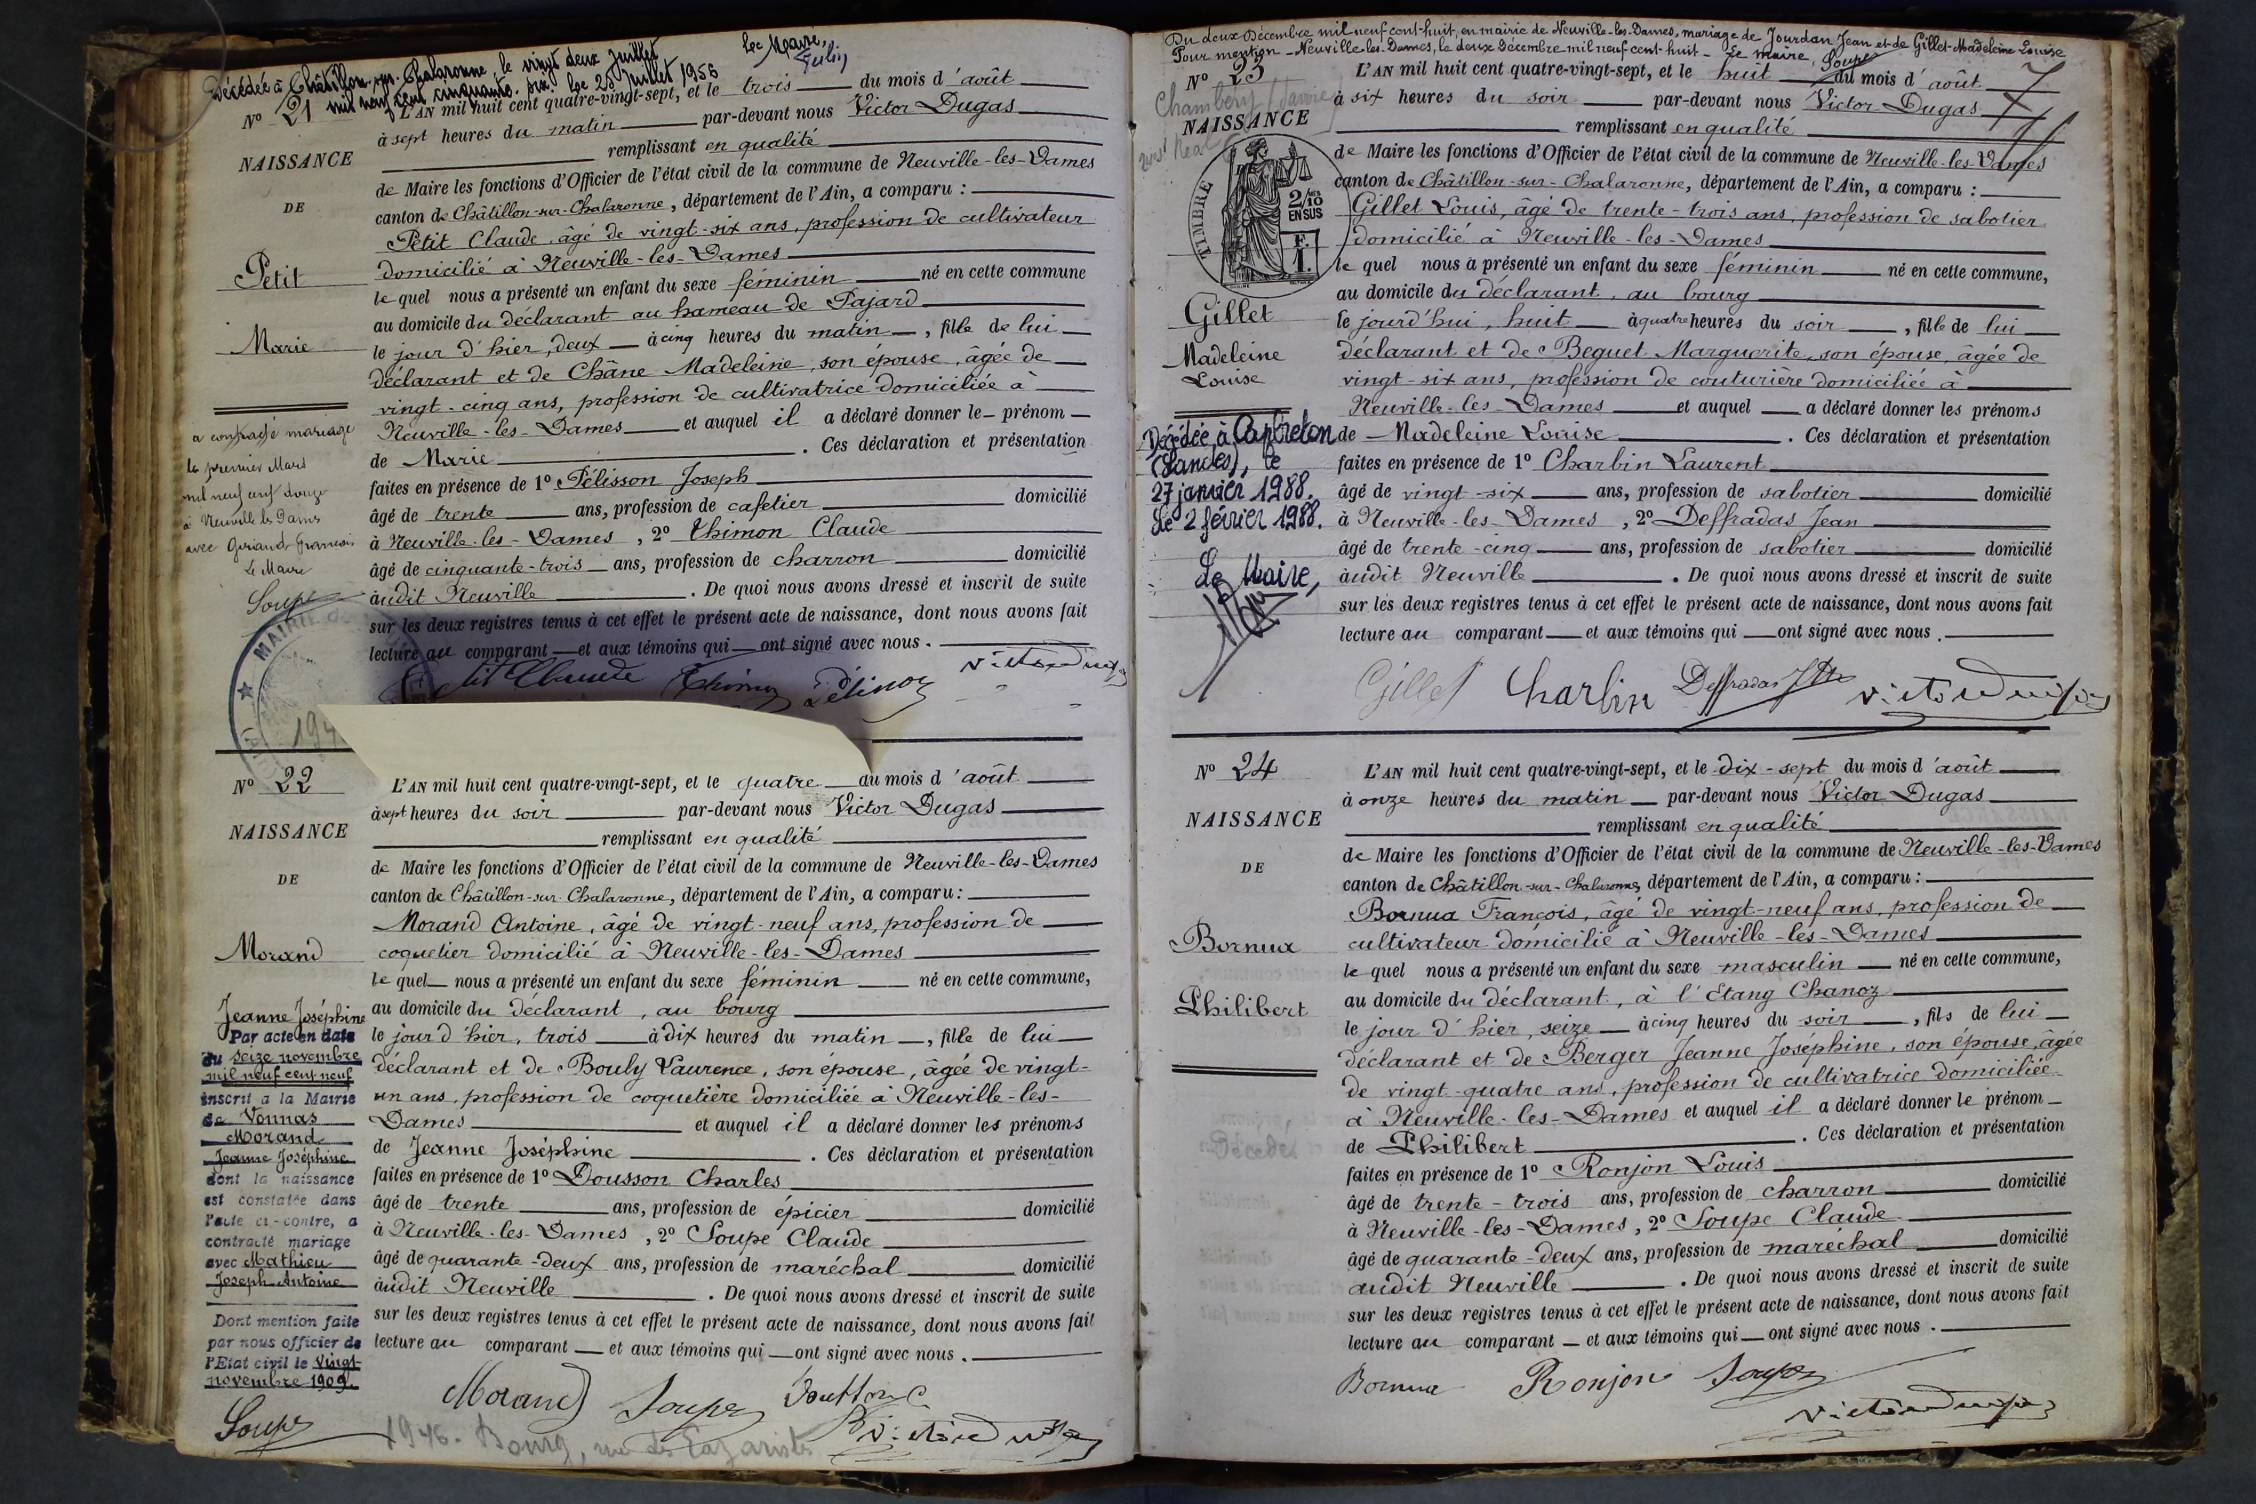 Décédée à Châtillon-sur-Chalaronne le vingt deux Juillet
mil neuf cent cinquante six. Le 25 Juillet 1956
Le Maire,
N° 21
NAISSANCE
DE
Petit
Marie
a contracté mariage
le premier Mars
mil neuf cent douze
à Neuville les Dames
avec Guiand François
Le Maire
Soupe
MAIRIE de
L'AN mil huit cent quatre-vingt-sept, et le trois du mois d'août
à sept heures du matin par-devant nous Victor Dugas
remplissant en qualité
de Maire les fonctions d'Officier de l'état civil de la commune de Neuville-les-Dames
canton de Châtillon-sur-Chalaronne, département de l'Ain, a comparu :
Petit Claude, âgé de vingt-six ans, profession de cultivateur
domicilié à Neuville-les-Dames
le quel nous a présenté un enfant du sexe féminin né en cette commune
au domicile du déclarant au hameau de Pajard
le jour d'hier, deux à cinq heures du matin, fille de lui
déclarant et de Châne Madeleine, son épouse, âgée de
vingt-cinq ans, profession de cultivatrice domiciliée à
Neuville-les-Dames et auquel il a déclaré donner le prénom
de Marie. Ces déclaration et présentation
faites en présence de 1° Pélisson Joseph
âgé de trente ans, profession de cafetier domicilié
à Neuville-les-Dames, 2° Thimon Claude
âgé de cinquante-trois ans, profession de charron domicilié
audit Neuville. De quoi nous avons dressé et inscrit de suite
sur les deux registres tenus à cet effet le présent acte de naissance, dont nous avons fait
lecture au comparant et aux témoins qui ont signé avec nous.
Petit Claude Thimon Pélisson Victor Dugas
N° 22
NAISSANCE
DE
Morand
Jeanne Joséphine
Par acte en date
du seize novembre
mil neuf cent neuf
inscrit à la Mairie
de Vonnas
Morand
Jeanne Joséphine
dont la naissance
est constatée dans
l'acte ci-contre, a
contracté mariage
avec Mathieu
Joseph Antoine
Dont mention faite
par nous officier de
l'Etat civil le vingt
novembre 1909.
Soupe
L'AN mil huit cent quatre-vingt-sept, et le quatre du mois d'août
à sept heures du soir par-devant nous Victor Dugas
remplissant en qualité
de Maire les fonctions d'Officier de l'état civil de la commune de Neuville-les-Dames
canton de Châtillon-sur-Chalaronne, département de l'Ain, a comparu :
Morand Antoine, âgé de vingt-neuf ans, profession de
coquetier domicilié à Neuville-les-Dames
le quel nous a présenté un enfant du sexe féminin né en cette commune,
au domicile du déclarant, au bourg
le jour d'hier, trois à dix heures du matin, fille de lui
déclarant et de Bouly Laurence, son épouse, âgée de vingt-
un ans, profession de coquetière domiciliée à Neuville-les-
Dames et auquel il a déclaré donner les prénoms
de Jeanne Joséphine. Ces déclaration et présentation
faites en présence de 1° Dousson Charles
âgé de trente ans, profession de épicier domicilié
à Neuville-les-Dames, 2° Soupe Claude
âgé de quarante-deux ans, profession de maréchal domicilié
audit Neuville. De quoi nous avons dressé et inscrit de suite
sur les deux registres tenus à cet effet le présent acte de naissance, dont nous avons fait
lecture au comparant et aux témoins qui ont signé avec nous.
Morand Soupe Victor Dugas
1946. Bourg, rue des Lazaristes
Du deux Décembre mil neuf cent-huit, en mairie de Neuville-les-Dames, mariage de Jourdan Jean et de Gillet Madeleine Louise
Pour mention - Neuville-les-Dames, le deux Décembre mil neuf cent-huit - Le maire, Soupe
N° 23
Chambéry
NAISSANCE
TIMBRE
2/10
EN SUS
F.
1.
Gillet
Madeleine
Louise
Décédée à Capbreton
(Landes), le
27 janvier 1988.
Le 2 février 1988.
Le Maire,
L'AN mil huit cent quatre-vingt-sept, et le huit du mois d'août
à six heures du soir par-devant nous Victor Dugas
remplissant en qualité
de Maire les fonctions d'Officier de l'état civil de la commune de Neuville-les-Dames
canton de Châtillon-sur-Chalaronne, département de l'Ain, a comparu :
Gillet Louis, âgé de trente-trois ans, profession de sabotier
domicilié à Neuville-les-Dames
le quel nous a présenté un enfant du sexe féminin né en cette commune,
au domicile du déclarant, au bourg
le jourd'hui, huit à quatre heures du soir, fille de lui
déclarant et de Beguet Marguerite, son épouse, âgée de
vingt-six ans, profession de couturière domiciliée à
Neuville-les-Dames et auquel a déclaré donner les prénoms
de Madeleine Louise. Ces déclaration et présentation
faites en présence de 1° Charbin Laurent
âgé de vingt-six ans, profession de sabotier domicilié
à Neuville-les-Dames, 2° Deffradas Jean
âgé de trente-cinq ans, profession de sabotier domicilié
audit Neuville. De quoi nous avons dressé et inscrit de suite
sur les deux registres tenus à cet effet le présent acte de naissance, dont nous avons fait
lecture au comparant et aux témoins qui ont signé avec nous.
Gillet Charbin Deffradas Victor Dugas
N° 24
NAISSANCE
DE
Bornua
Philibert
L'AN mil huit cent quatre-vingt-sept, et le dix-sept du mois d'août
à onze heures du matin par-devant nous Victor Dugas
remplissant en qualité
de Maire les fonctions d'Officier de l'état civil de la commune de Neuville-les-Dames
canton de Châtillon-sur-Chalaronne, département de l'Ain, a comparu :
Bornua François, âgé de vingt-neuf ans, profession de
cultivateur domicilié à Neuville-les-Dames
le quel nous a présenté un enfant du sexe masculin né en cette commune,
au domicile du déclarant, à l'Etang Chanoz
le jour d'hier, seize à cinq heures du soir, fils de lui
déclarant et de Berger Jeanne Joséphine, son épouse, âgée
de vingt-quatre ans, profession de cultivatrice domiciliée
à Neuville-les-Dames et auquel il a déclaré donner le prénom
de Philibert. Ces déclaration et présentation
faites en présence de 1° Ronjon Louis
âgé de trente-trois ans, profession de charron domicilié
à Neuville-les-Dames, 2° Soupe Claude
âgé de quarante-deux ans, profession de maréchal domicilié
audit Neuville. De quoi nous avons dressé et inscrit de suite
sur les deux registres tenus à cet effet le présent acte de naissance, dont nous avons fait
lecture au comparant et aux témoins qui ont signé avec nous.
Bornua Ronjon Soupe
Victor Dugas